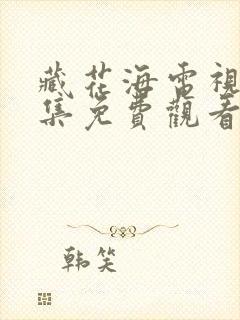 藏花海電視
集免費觀看
韩笑